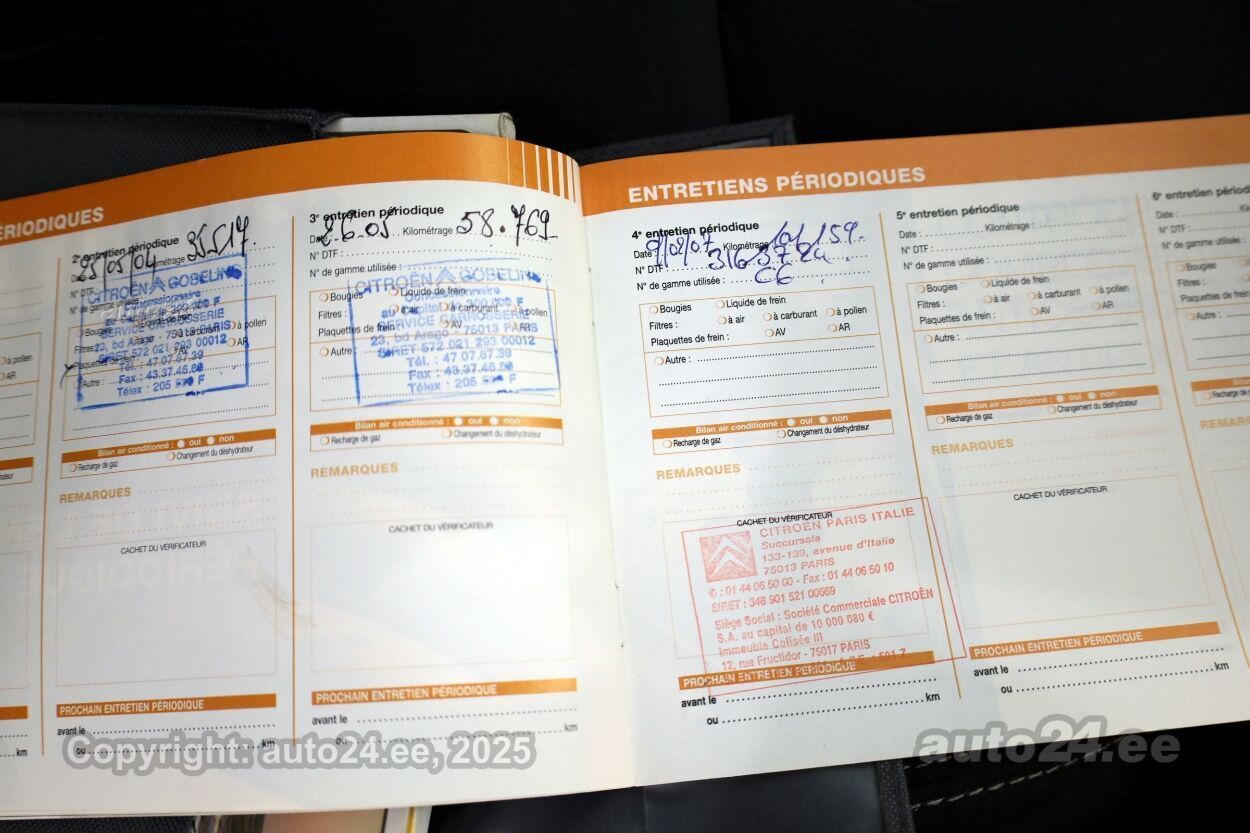 ÉRIODIQUES
à pollen
AR
km
2e entretien périodique
25/05/04
Kilométrage 35.517.
N° DTF
N° de gamme utilisée
CITROËN GOBELINS
Concessionnaire
SERVICE CARROSSERIE
23, bd Arago - 75013 PARIS
SIRET 572 021 293 00012
Tél. : 47.07.87.39
Fax : 43.37.46.80
Bougies
à pollen
AR
Autre :
Bilan air conditionné : oui non
Recharge de gaz
Changement du déshydrateur
REMARQUES
CACHET DU VÉRIFICATEUR
PROCHAIN ENTRETIEN PÉRIODIQUE
avant le
ou km
3e entretien périodique
Date 2.6.05 Kilométrage 58.769
N° DTF :
N° de gamme utilisée :
CITROËN GOBELINS
Concessionnaire
SERVICE CARROSSERIE
23, bd Arago - 75013 PARIS
SIRET 572 021 293 00012
Tél. : 47.07.87.39
Fax : 43.37.46.80
Bougies Liquide de frein
Filtres : à air à carburant à pollen
Plaquettes de frein : AV AR
Autre :
Bilan air conditionné : oui non
Recharge de gaz
Changement du déshydrateur
REMARQUES
CACHET DU VÉRIFICATEUR
PROCHAIN ENTRETIEN PÉRIODIQUE
avant le
ou km
ENTRETIENS PÉRIODIQUES
4e entretien périodique
Date : 9/02/07 Kilométrage 101.159.
N° DTF
N° de gamme utilisée : C6
Bougies Liquide de frein
Filtres : à air à carburant à pollen
Plaquettes de frein : AV AR
Autre :
Bilan air conditionné : oui non
Recharge de gaz
Changement du déshydrateur
REMARQUES
CACHET DU VÉRIFICATEUR
CITROËN PARIS ITALIE
Succursale
133-139, avenue d'Italie
75013 PARIS
✆ : 01 44 06 50 00 - Fax : 01 44 06 50 10
SIRET : 348 901 521 00669
Siège Social : Société Commerciale CITROËN
S.A. au capital de 10 000 080 €
Immeuble Colisée III
12, rue Fructidor - 75017 PARIS
PROCHAIN ENTRETIEN PÉRIODIQUE
avant le
ou km
5e entretien périodique
Date : Kilométrage :
N° DTF :
N° de gamme utilisée :
Bougies Liquide de frein
Filtres : à air à carburant à pollen
Plaquettes de frein : AV AR
Autre :
Bilan air conditionné : oui non
Recharge de gaz
Changement du déshydrateur
REMARQUES
CACHET DU VÉRIFICATEUR
PROCHAIN ENTRETIEN PÉRIODIQUE
avant le
ou km
6e entretien périod
Date :
N° DTF :
N° de gamme utilisée
Bougies
Filtres :
Plaquettes de frein
Autre :
Recharge de
REMAR
Copyright: auto24.ee, 2025
auto24.ee